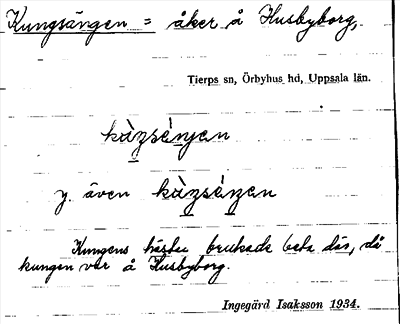 Kungsängen = åker å Husbyborg,
Tierps sn, Örbyhus hd, Uppsala län.
kàŋséŋen
y. även kàŋséŋen
Kungens hästar brukade beta där, då
kungen var å Husbyborg.
Ingegärd Isaksson 1934.